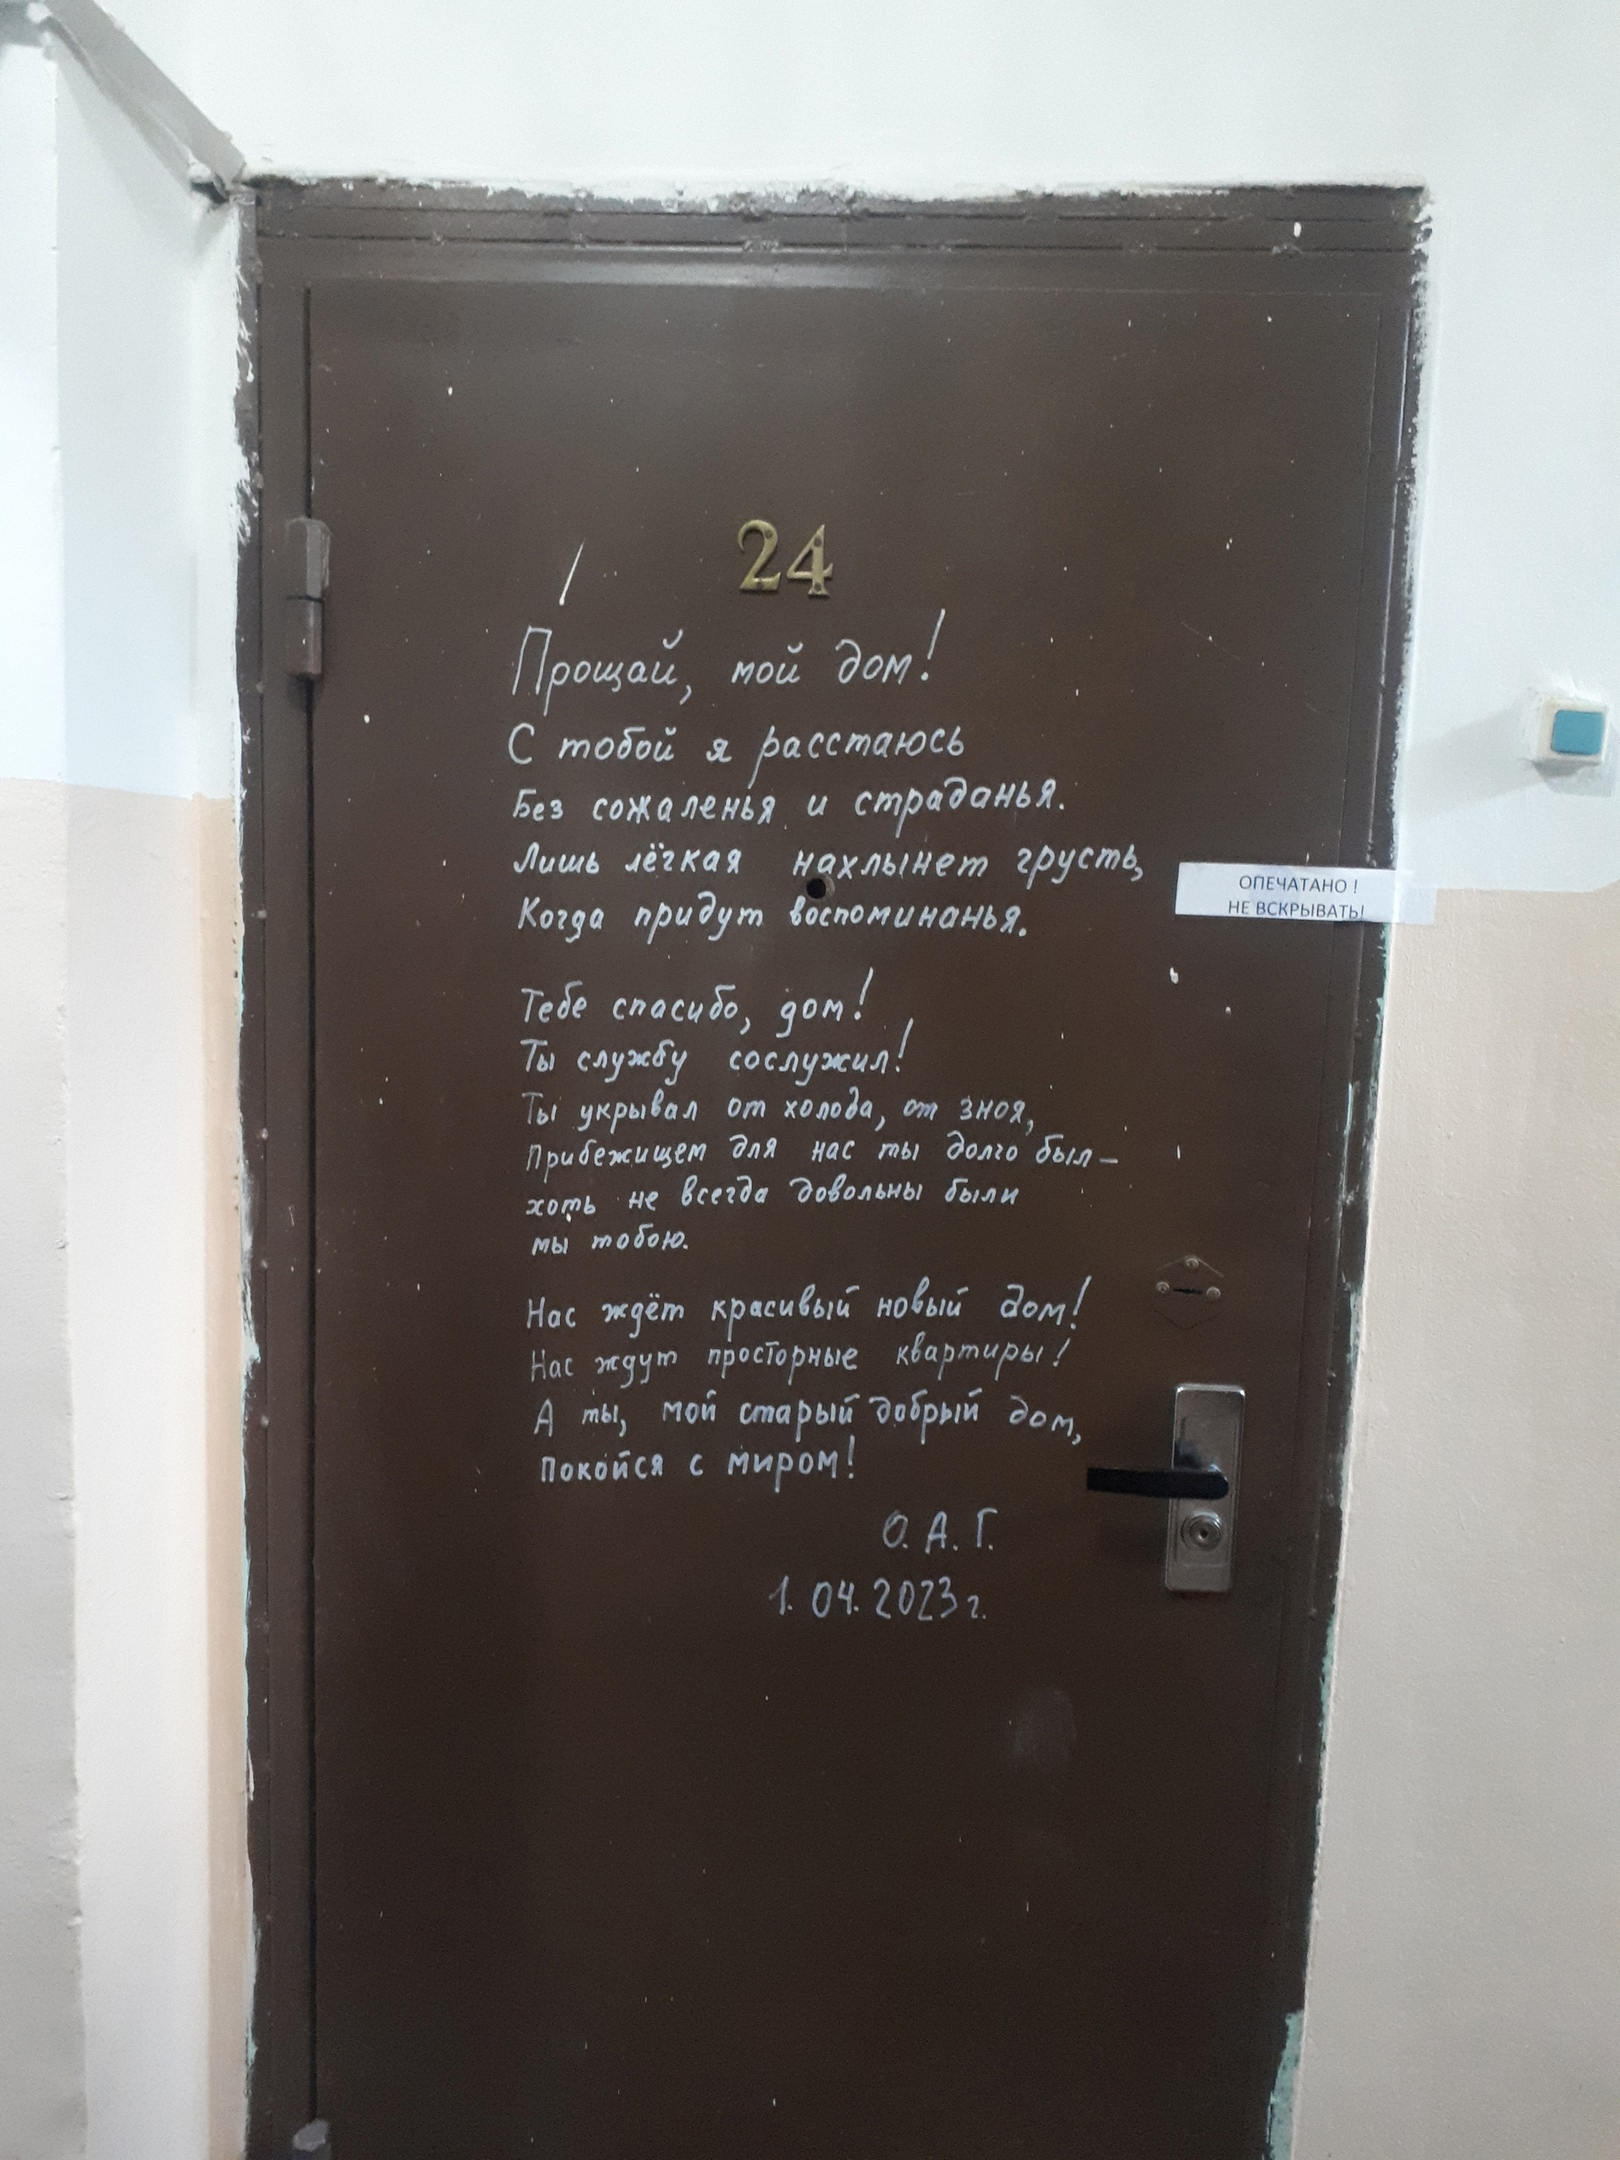 24
Прощай, мой дом!
С тобой я расстаюсь
Без сожаленья и страданья.
Лишь лёгкая нахлынет грусть,
Когда придут воспоминанья.
ОПЕЧАТАНО !
НЕ ВСКРЫВАТЬ!
Тебе спасибо, дом!
Ты службу сослужил!
Ты укрывал от холода, от зноя,
Прибежищем для нас ты долго был –
хоть не всегда довольны были
мы тобою.
Нас ждёт красивый новый дом!
Нас ждут просторные квартиры!
А ты, мой старый добрый дом,
Покойся с миром!
О. А. Г.
1. 04. 2023 г.